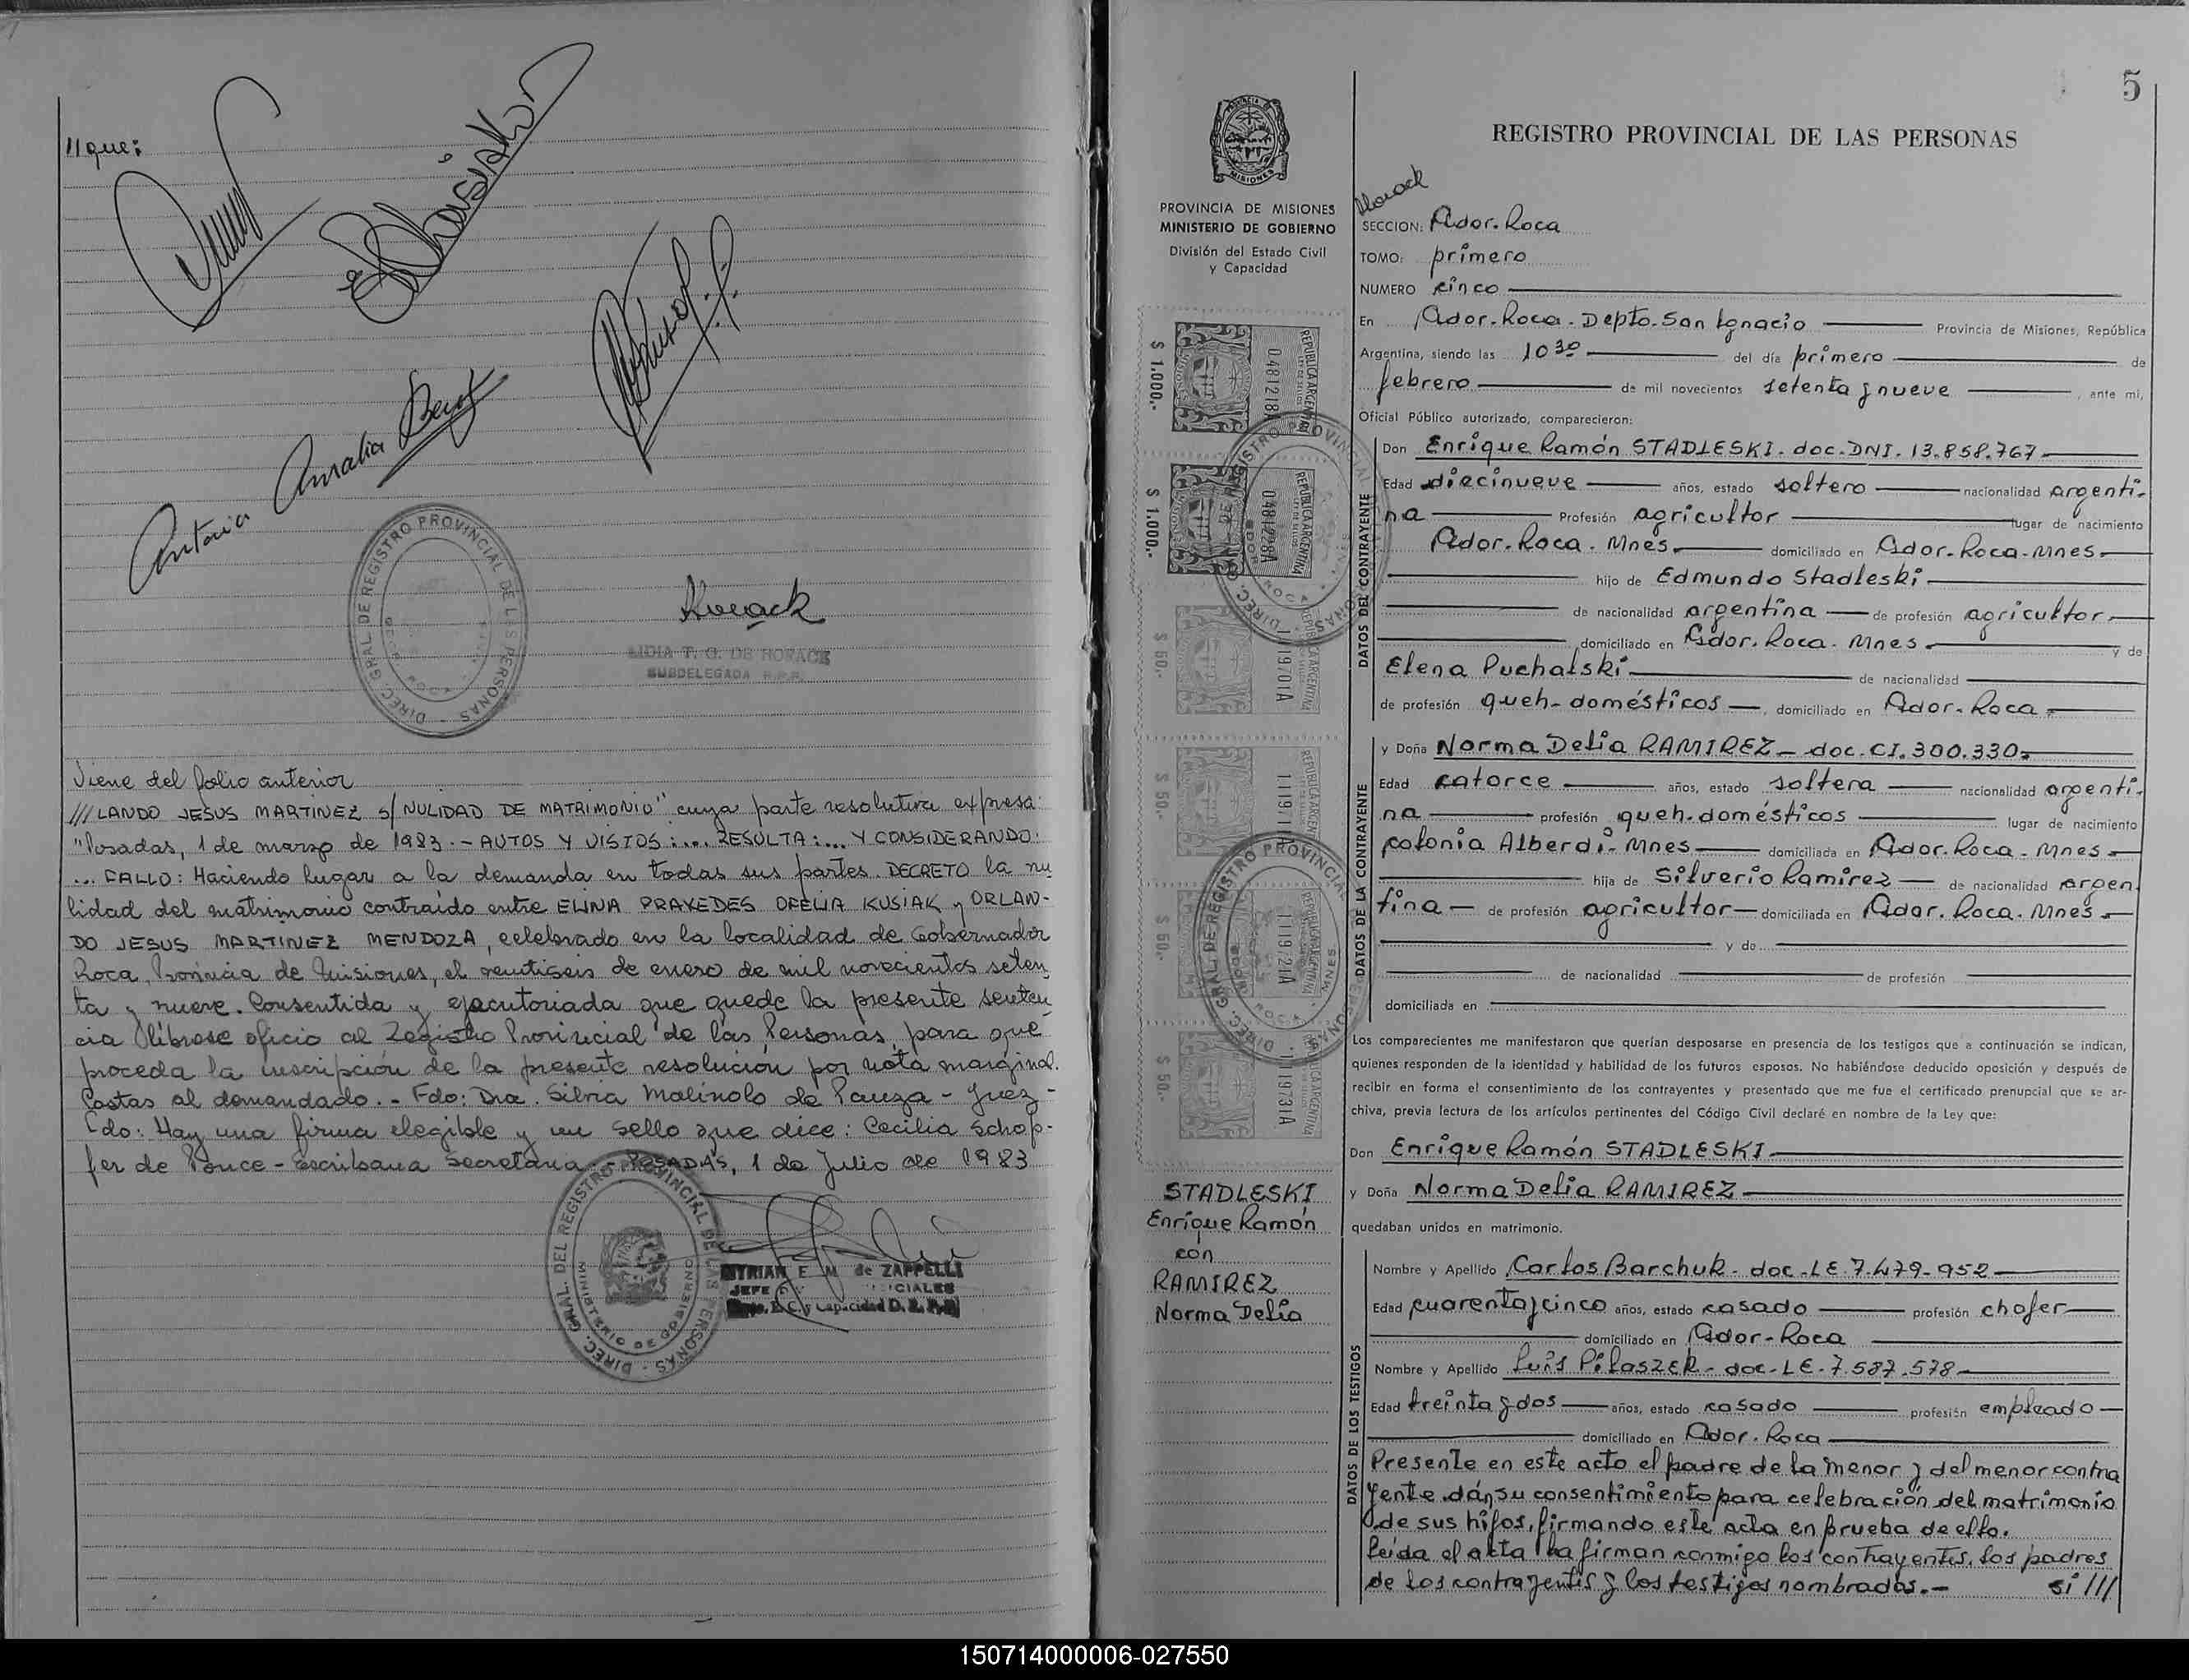 //que:
Antonia Amalia
LIDIA T. G. DE HORACK
SUBDELEGADA R.P.P.
DIREC. GRAL DE REGISTRO PROVINCIAL DE LAS PERSONAS
Viene del folio anterior
///LANDO JESUS MARTINEZ s/ NULIDAD DE MATRIMONIO" cuya parte resolutiva expresa:
"Posadas, 1 de marzo de 1983.- AUTOS Y VISTOS:... RESULTA:... Y CONSIDERANDO:
... FALLO: Haciendo lugar a la demanda en todas sus partes. DECRETO la nu
lidad del matrimonio contraído entre ELINA PRAXEDES OFELIA KUSIAK y ORLAN-
DO JESUS MARTINEZ MENDOZA, celebrado en la localidad de Gobernador
Roca, Provincia de Misiones, el veintiseis de enero de mil novecientos seten
ta y nueve. Consentida y ejecutoriada que quede la presente senten
cia líbrese oficio al Registro Provincial de las Personas, para que
proceda la inscripción de la presente resolución por nota marginal.
Costas al demandado.- Fdo: Dra. Silvia Malinolo de Pauza - Juez -
do: Hay una firma elegible y un sello que dice: Cecilia Schop-
fer de Ponce - Escribana Secretaria.- POSADAS, 1 de Julio de 1983
DIREC. GRAL. DEL REGISTRO PROVINCIAL DE LAS PERSONAS
MINISTERIO DE GOBIERNO
MYRIAN E. M. de ZAPPELLI
JEFE
5
PROVINCIA DE MISIONES
MINISTERIO DE GOBIERNO
División del Estado Civil
y Capacidad
REGISTRO PROVINCIAL DE LAS PERSONAS
Horack
SECCION: Gdor. Roca
TOMO: primero
NUMERO cinco
En Gdor. Roca. Depto. San Ignacio Provincia de Misiones, República
Argentina, siendo las 10 30 del día primero de
febrero de mil novecientos setenta y nueve, ante mí,
Oficial Público autorizado, comparecieron:
DATOS DEL CONTRAYENTE
Don Enrique Ramón STADLESKI. doc. DNI. 13.858.767
Edad diecinueve años, estado soltero nacionalidad argenti-
na Profesión agricultor lugar de nacimiento
Gdor. Roca. Mnes. domiciliado en Gdor. Roca. Mnes.
hijo de Edmundo Stadleski
de nacionalidad argentina de profesión agricultor
domiciliado en Gdor. Roca. Mnes. y de
Elena Puchalski de nacionalidad
de profesión queh. domésticos, domiciliado en Gdor. Roca
DATOS DE LA CONTRAYENTE
y Doña Norma Delia RAMIREZ - doc. CI. 300.330
Edad catorce años, estado soltera nacionalidad argenti-
na profesión queh. domésticos lugar de nacimiento
colonia Alberdi - Mnes domiciliada en Gdor. Roca. Mnes
hija de Silverio Ramirez de nacionalidad argen
tina de profesión agricultor domiciliada en Gdor. Roca. Mnes
y de
de nacionalidad de profesión
domiciliada en
Los comparecientes me manifestaron que querían desposarse en presencia de los testigos que a continuación se indican,
quienes responden de la identidad y habilidad de los futuros esposos. No habiéndose deducido oposición y después de
recibir en forma el consentimiento de los contrayentes y presentado que me fue el certificado prenupcial que se ar-
chiva, previa lectura de los artículos pertinentes del Código Civil declaré en nombre de la Ley que:
Don Enrique Ramón STADLESKI
y Doña Norma Delia RAMIREZ
quedaban unidos en matrimonio.
DATOS DE LOS TESTIGOS
Nombre y Apellido Carlos Barchuk - doc. LE. 7.479.952
Edad cuarenta y cinco años, estado casado profesión chofer
domiciliado en Gdor. Roca
Nombre y Apellido Luis Pilaszek - doc. LE. 7.587.578
Edad treinta y dos años, estado casado profesión empleado
domiciliado en Gdor. Roca
Presente en este acto el padre de la menor y del menor contra
yente dán su consentimiento para celebración del matrimonio
de sus hijos, firmando este acta en prueba de ello.
Leida el acta la firman conmigo los contrayentes, los padres
de los contrayentes y los testigos nombrados.- si ///
$ 1.000.-
$ 1.000.-
$ 50.-
$ 50.-
$ 50.-
$ 50.-
REPUBLICA ARGENTINA
STADLESKI
Enrique Ramón
con
RAMIREZ
Norma Delia
150714000006-027550